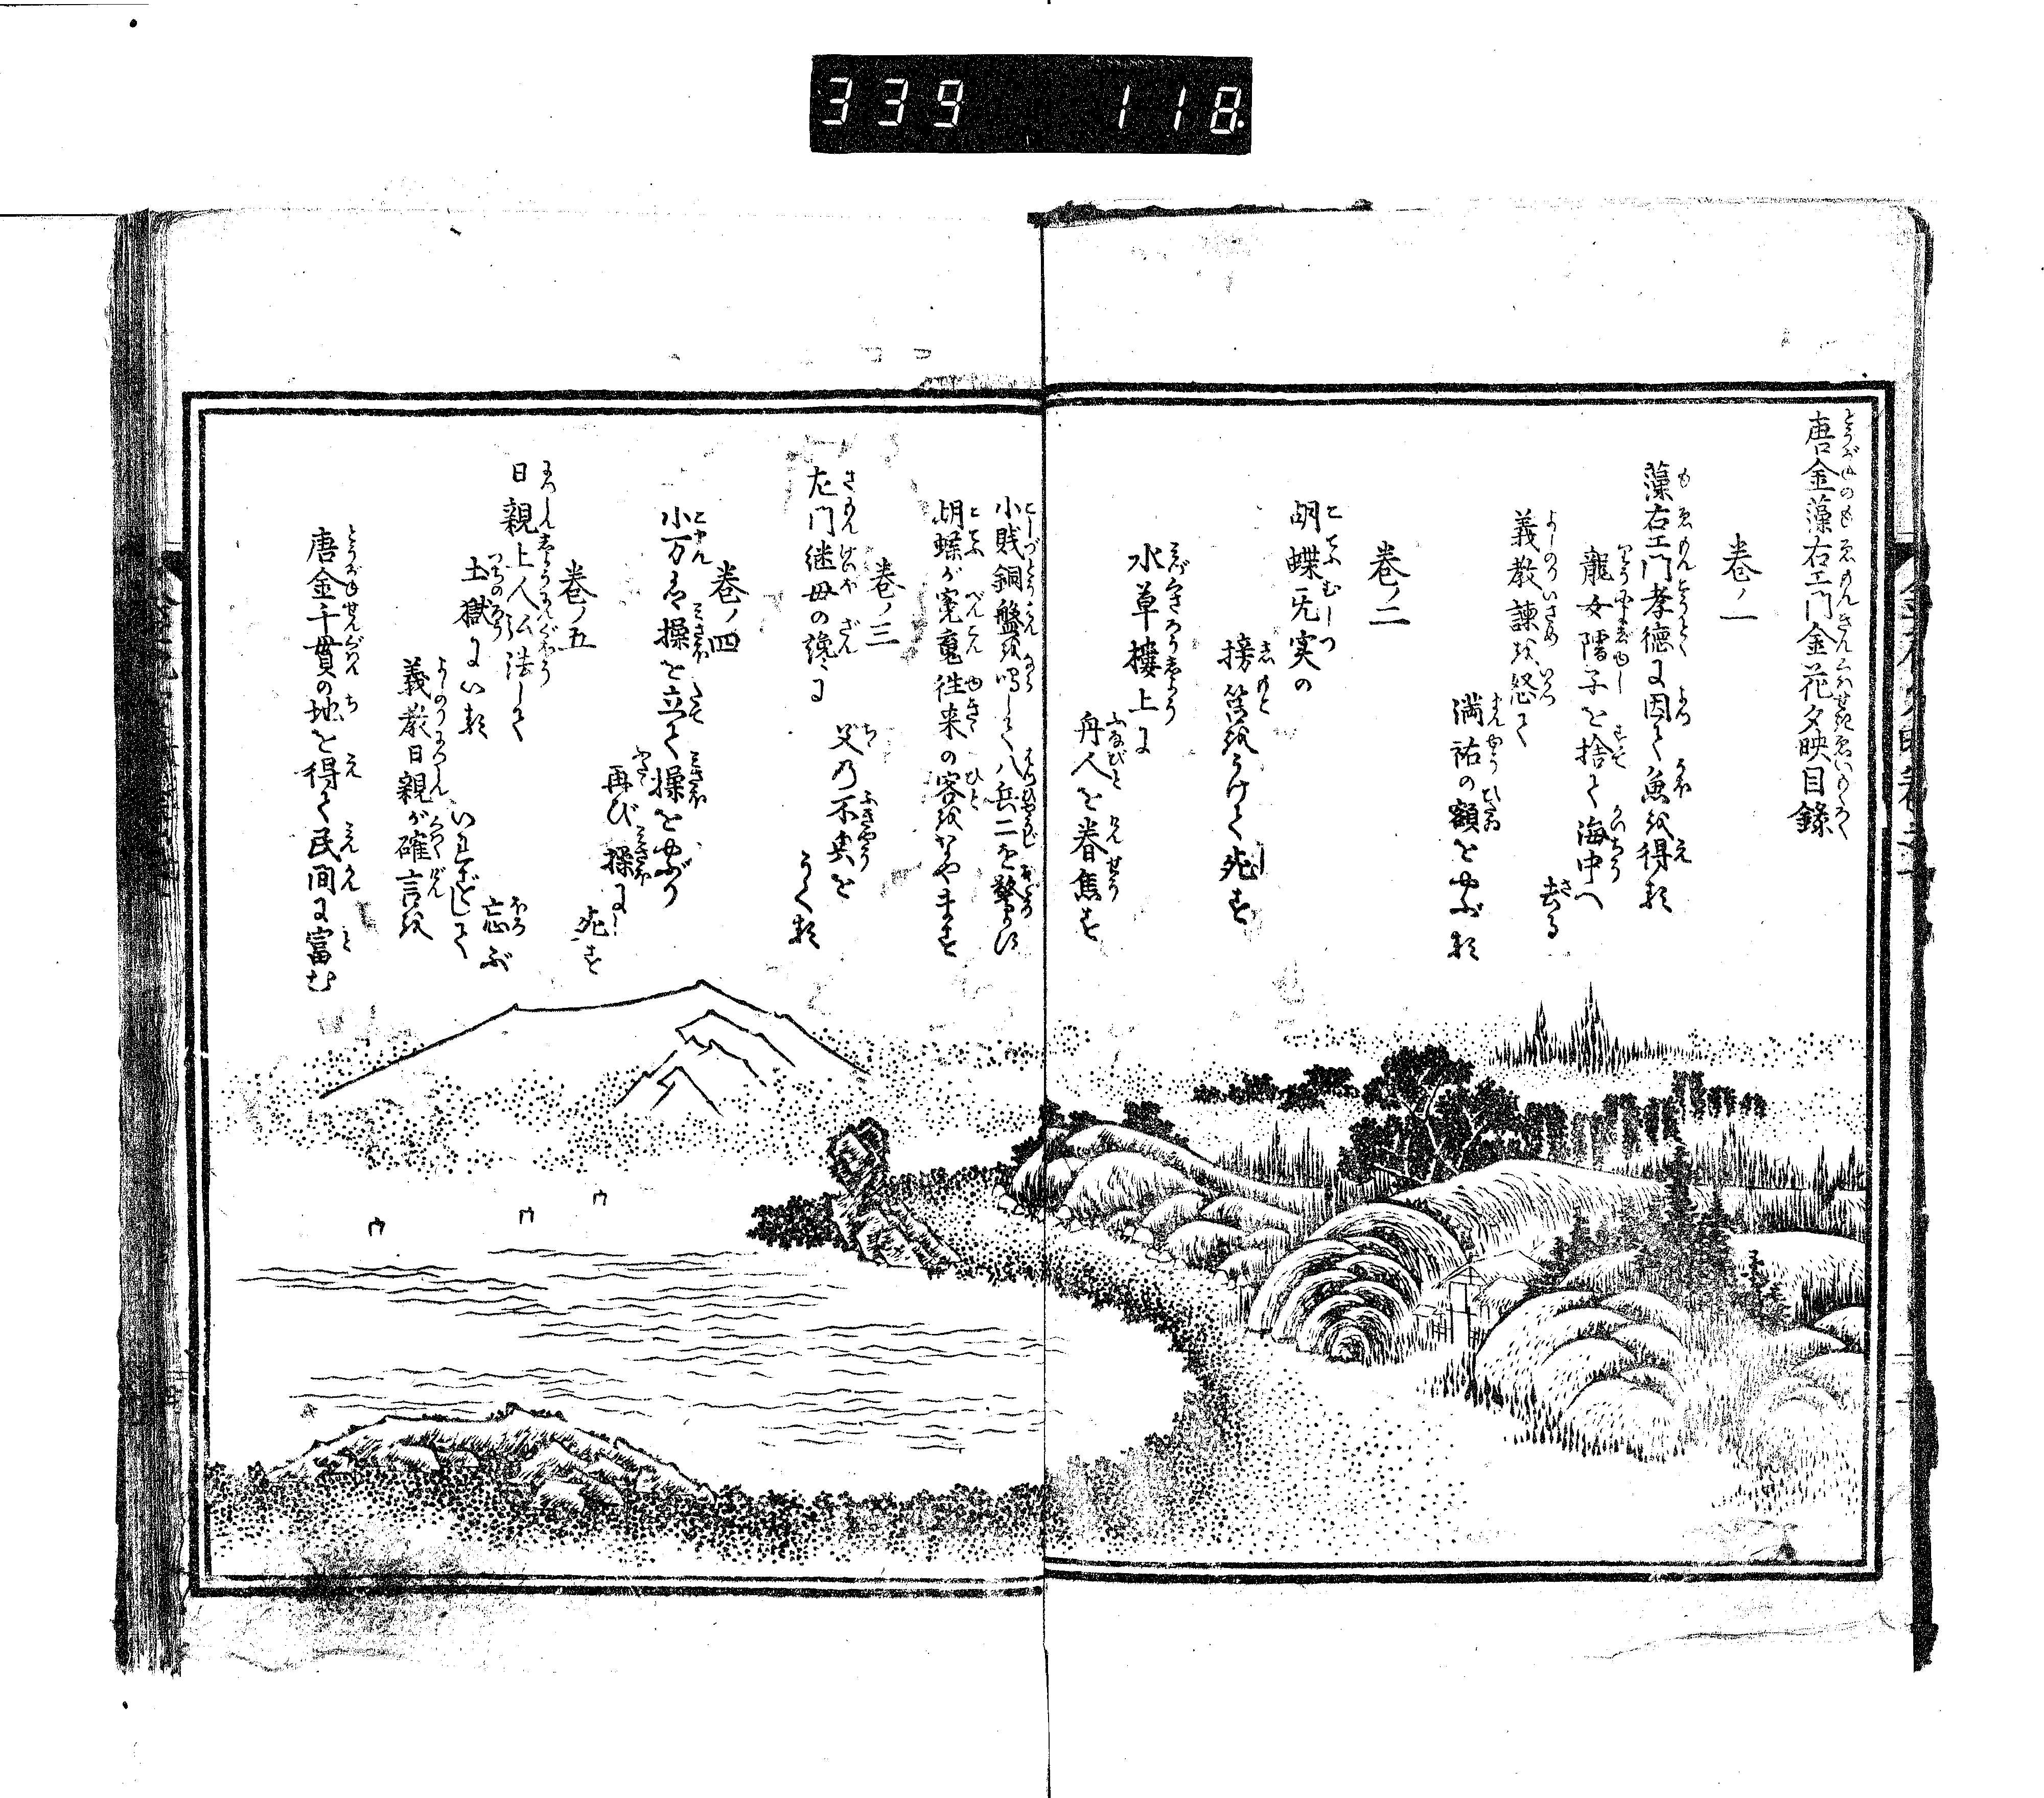 339 118
唐金藻右エ門金花夕映目録
巻ノ一
藻右エ門孝徳に因て魚を得る
龍女孺子を捨て海中へ
去る
義教諫を怒て
満祐の額をやぶる
巻ノ二
胡蝶无実の
搒笞をうけて死す
水草楼上に
舟人を眷焦す
小賎銅盤を鳴して八兵二を驚かす
胡蝶が寃魂往来の客をなやます
巻ノ三
左門継母の讒に
父の不興を
うくる
巻ノ四
小万は操を立て操をやぶり
再び操に
死す
巻ノ五
日親上人公法して
土獄にいる
義教日親が確言を
いれずして
忘ぶ
唐金千貫の地を得て民間に富む